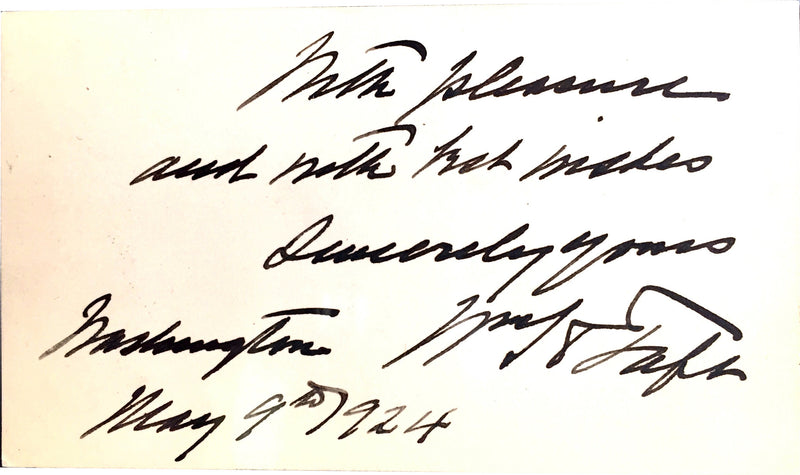 With pleasure
and with best wishes
Sincerely yours
Wm H Taft
Washington
May 9th 1924